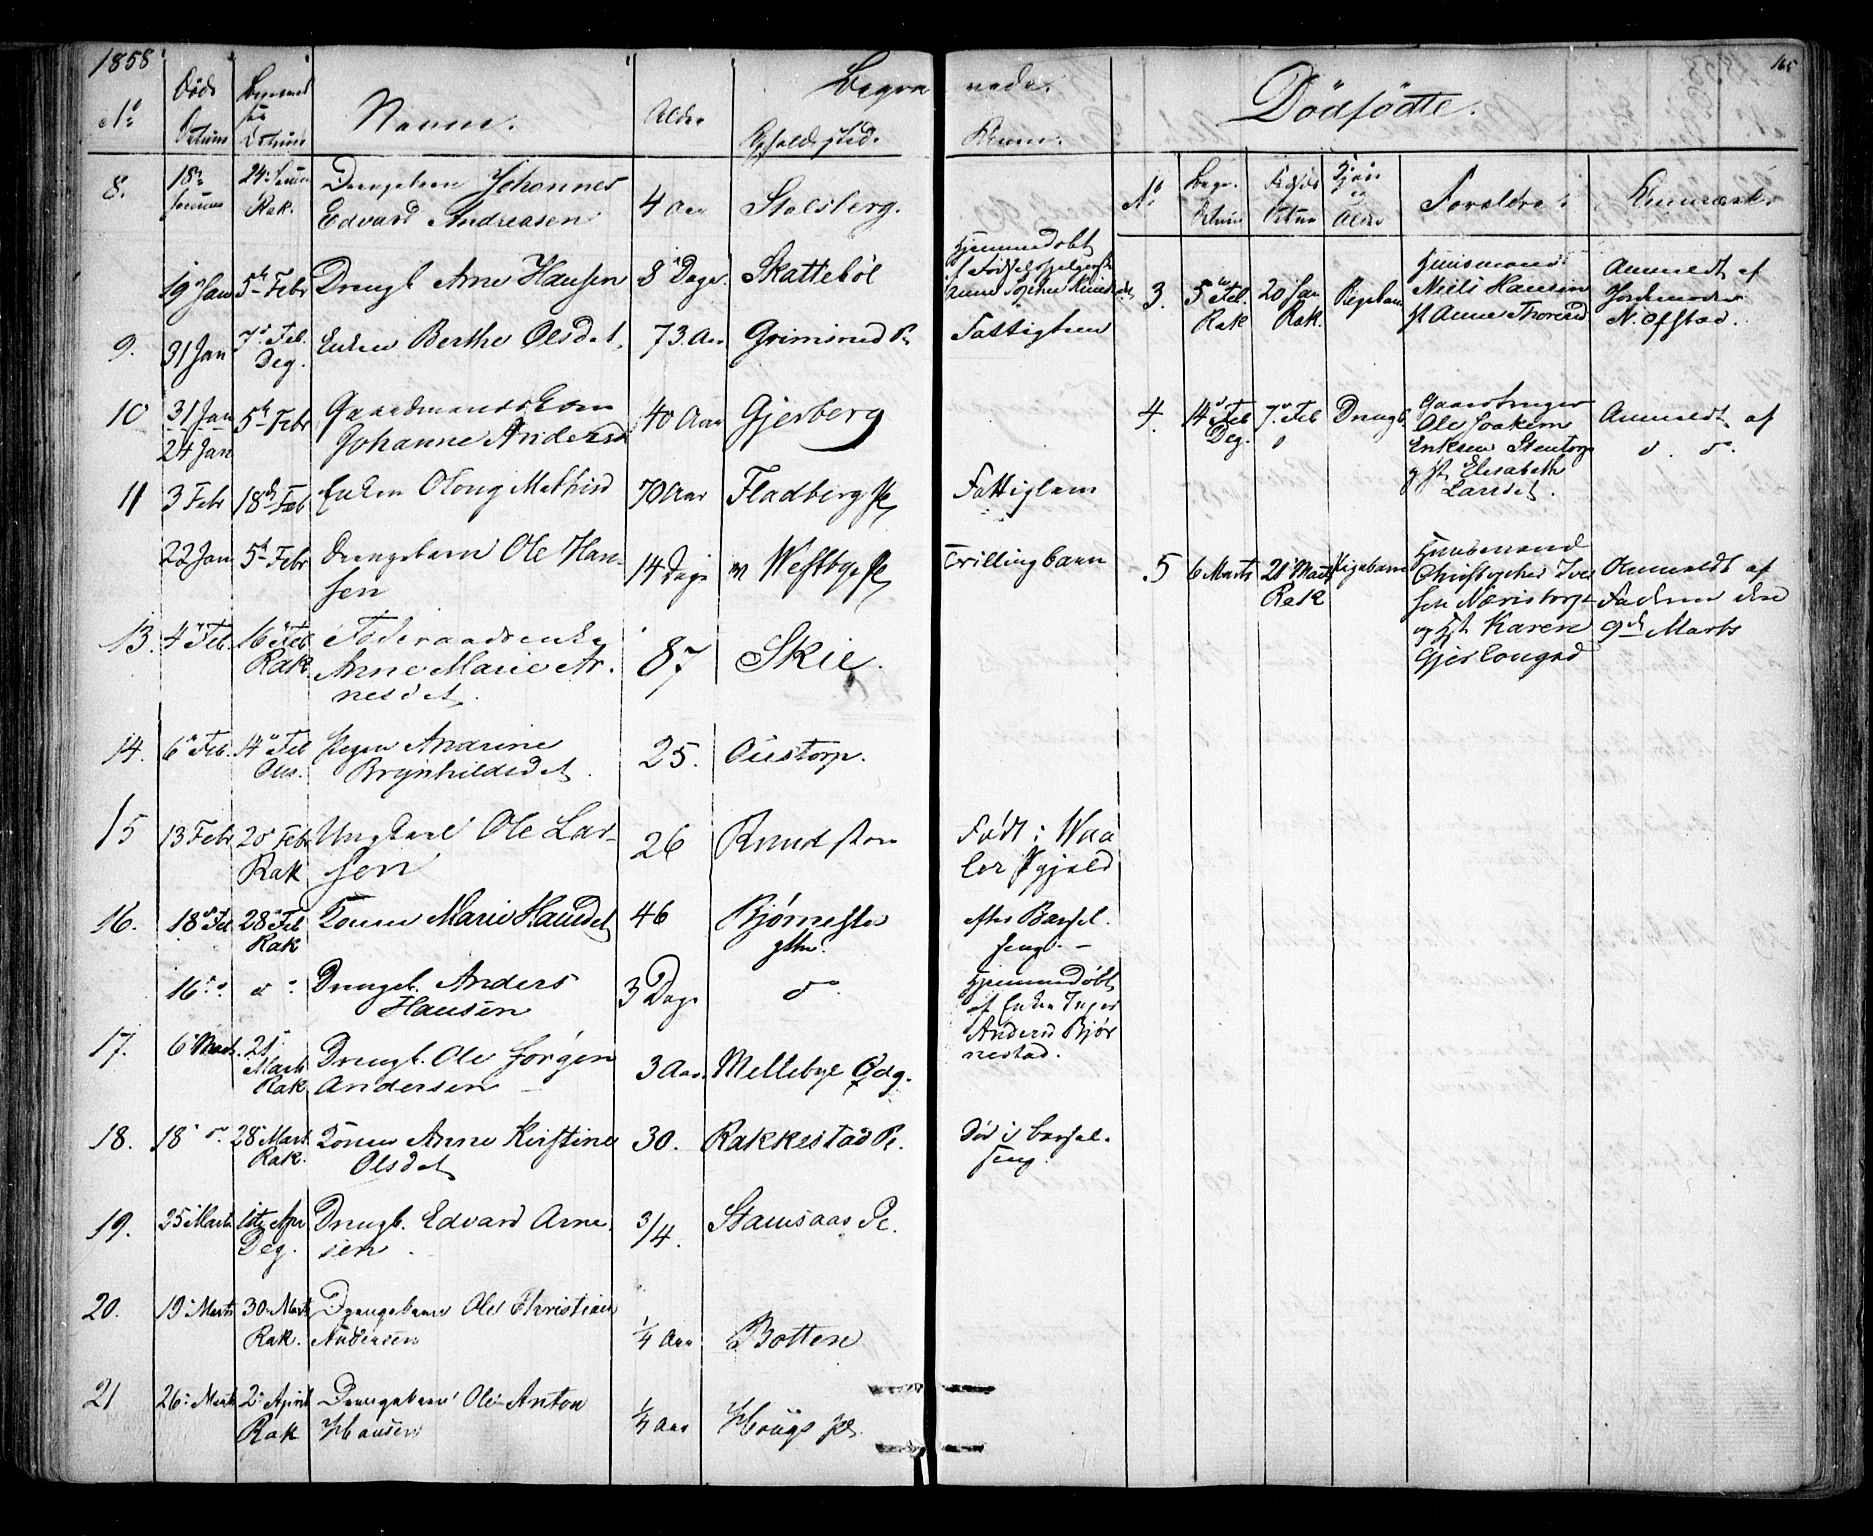 1858
165
Begra vede.
Dødfødte.
No Døds Datum Begravel Datum Navne. Alder Opholdssted. Anm.
8. 18de Januar 24 Januar Rak. Drengebarn Johannes
Edvard Andreasen 4 Aar Stolsberg.
19 Jan 5te Febr Drengb. Arne Hansen 8 Dage Skattebøl Hjemmedøbt
af
9. 31 Jan 7de Feb. Deg. Enken Berthe Olsdat. 73 Aar Grimsrud Pe Fattiglem
10 31 Jan 24 Jan 5te Febr Gaardmandskone
Johanne Andersd 40 Aar Gjerberg
11 3 Febr 18de Feb Enken Oloug Mathisd 70 Aar Fladberg Pe Fattiglem
22 Jan 5te Febr Drengebarn Ole Han-
sen 14 Dage Westbye Pe Trillingbarn
13. 4de Feb. 16de Feb Rak Føderaadsenke
Anne Marie Ar-
nesdat. 87 Skie.
14. 6te Feb. 14de Feb Ous. Pigen Andrine
Brynhildsdat. 25. Oustorp.
15 13 Febr 20de Febr Rak Ungkarl Ole Lar-
sen 26 Knudston Født i Waa
ler Pgjeld
16. 18de Feb 28de Feb Rak Konen Marie Hansdat 46 Bjørnestad efter Barsel
seng. -
16 do do Drengeb. Anders
Hansen 3 Dage do Hjemmedøbt
af Enken Inger
Andersd Bjør
nestad.
17. 6te Marts. 21 Marts Rak Drengb. Ole Jørgen
Andersen 3 Aar Mellebye Ødg.
18. 18 do. 28 Marts Rak. Konen Anne Kirstine
Olsdat 30. Rakkestad Pe. Død i Barsel-
seng.
19. 25 Marts 1ste Apr Deg. Drengb. Edvard Arne
sen. 3/4. Stamsaas Pe.
20. 19 Marts 30 Marts Rak. Drengebarn Ole Christian
Andersen 1/4 Aar Botten
21 26 Marts 2 April Rak Drengebarn Ole Anton
Hansen 1/4 Aar Houg Pe
No Begr. Datum Fødsels Datum Kjøn og Alder Forældre Anmærk.
3. 5te Feb. Rak 20 Jan Rak. Pigebarn Huusmand
Niels Hansen
Anne Thoresd Anmeldt af
Jordemoder
N. Ofstad.
4. 14de Feb Deg. 7de Feb Drengb. Gaardbruger
Ole Joakim
Eriksen Stentorp
og Hst Elisabeth
Larsdat. Anmeldt af
do. do.
5 6 Marts 21 Marts Rak Pigebarn Huusmand
Christopher Iver
sen Næristorp
og Hst Karen
Gjerlougsd Anmeldt af
Faderen den
9de Marts